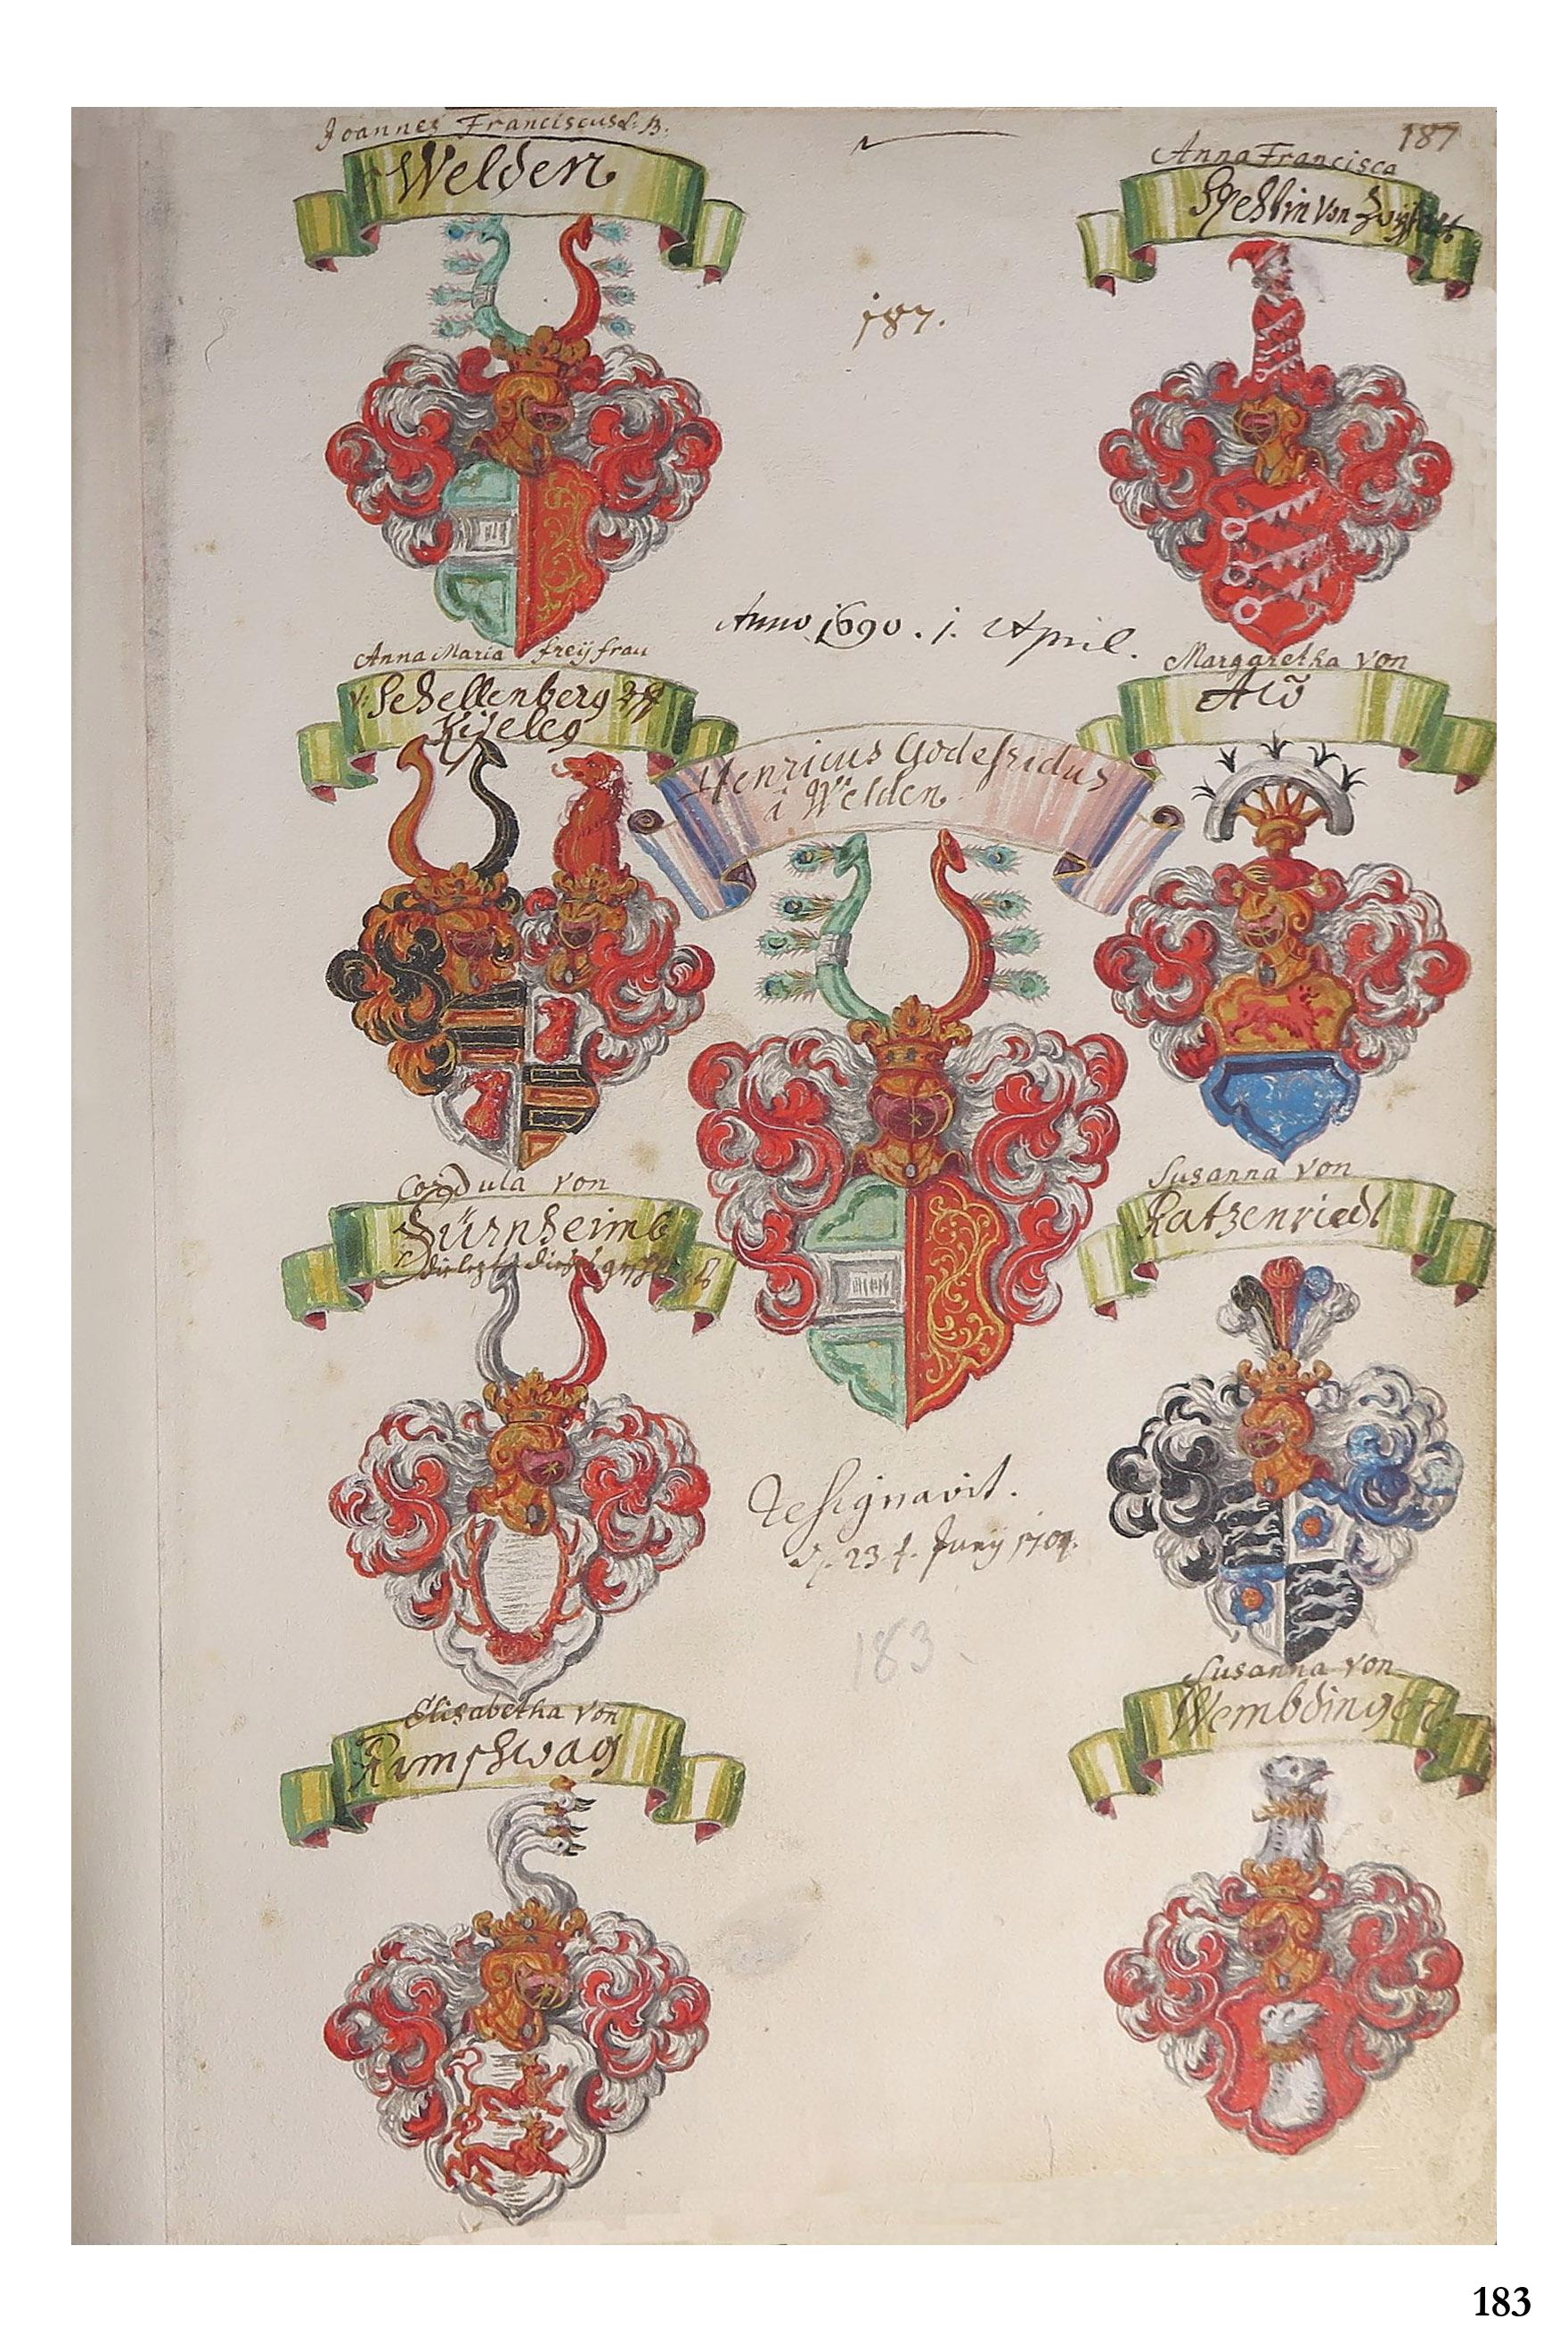 Joannes Franciscus L: B.
Welden
187
Anna Francisca
Spethin von
187.
Anno 1690. 1. April.
Anna Maria freÿfrau
v: Schellenberg
Margaretha von
Henricus Godefridus
à Welden
Cordula von
Hürnheimb
Susanna von
Ratzenriedt
Resignavit.
23 Junÿ
183
Elisabetha von
Ramschwag
Susanna von
Wembdingen
183